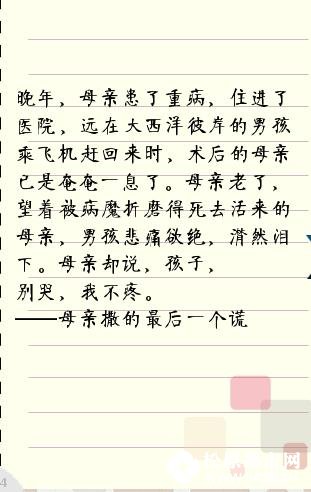 晚年，母亲患了重病，住进了
医院，远在大西洋彼岸的男孩
乘飞机赶回来时，术后的母亲
已是奄奄一息了。母亲老了，
望着被病魔折磨得死去活来的
母亲，男孩悲痛欲绝，潸然泪
下。母亲却说，孩子，
别哭，我不疼。
——母亲撒的最后一个谎
4